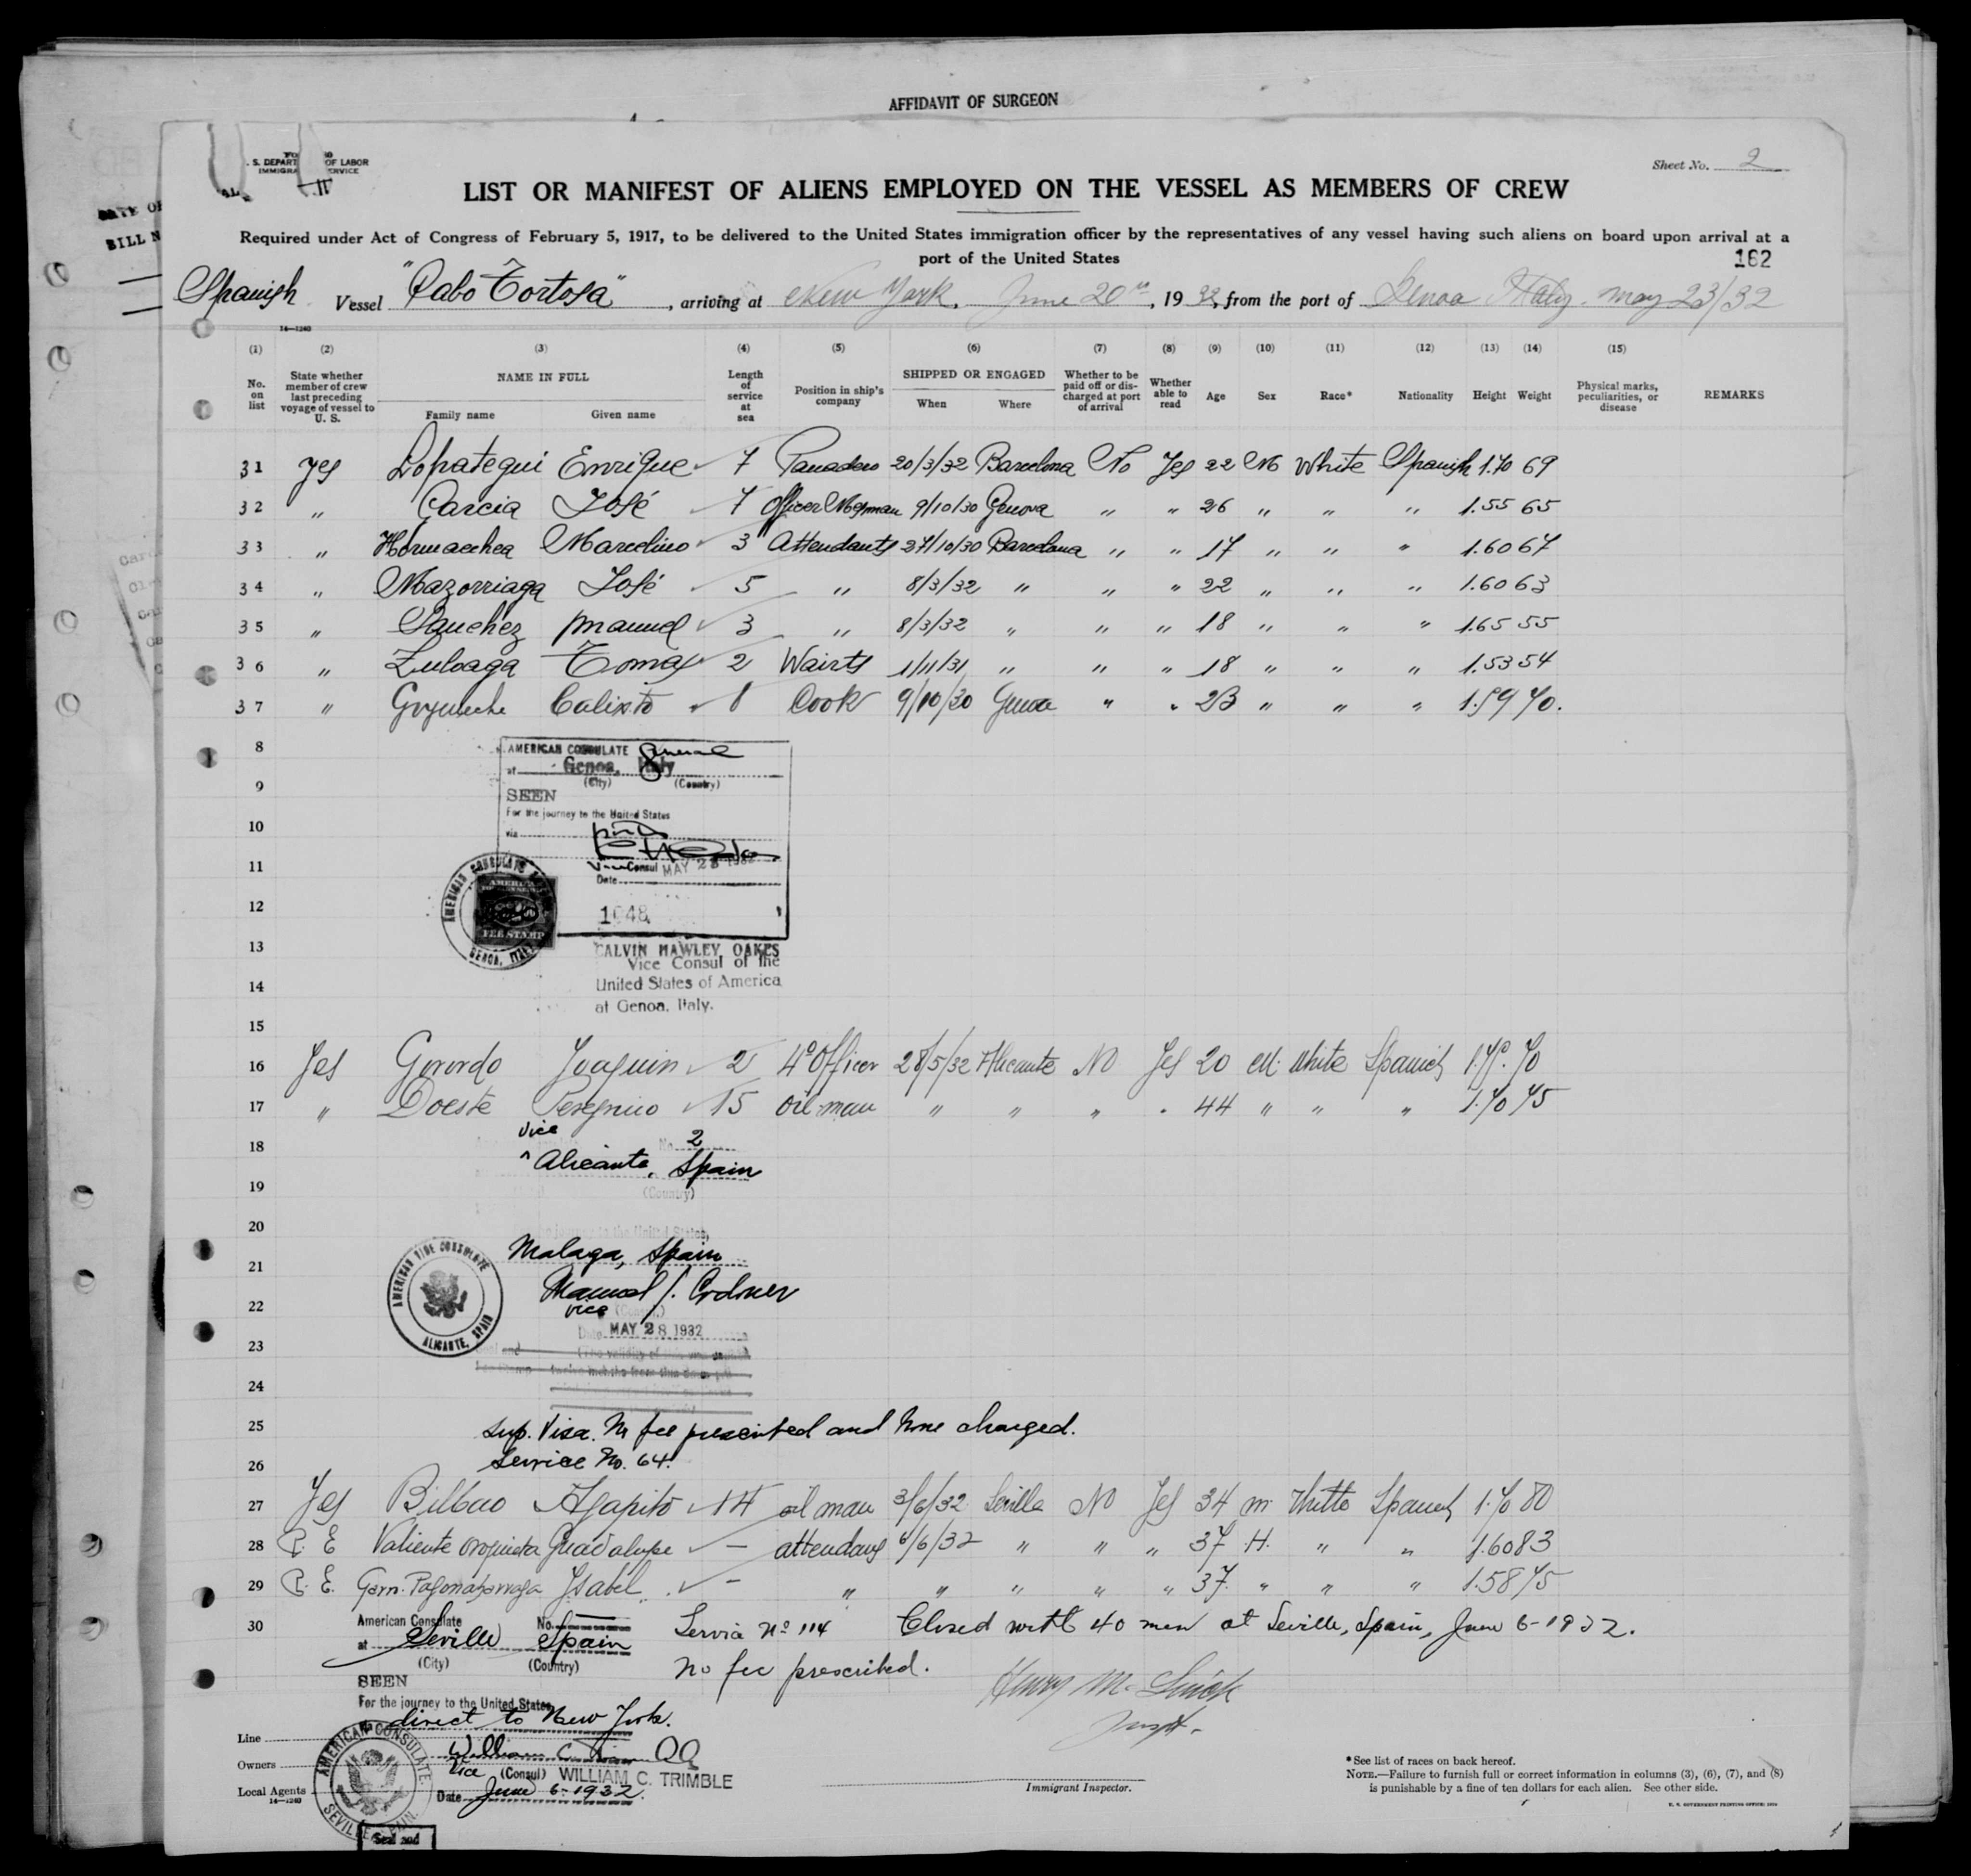 AFFIDAVIT OF SURGEON
S. DEPART OF LABOR
IMMIGRA ERVICE
Sheet No. 2
LIST OR MANIFEST OF ALIENS EMPLOYED ON THE VESSEL AS MEMBERS OF CREW
Required under Act of Congress of February 5, 1917, to be delivered to the United States immigration officer by the representatives of any vessel having such aliens on board upon arrival at a
port of the United States
162
Spanish Vessel "Cabo Tortosa", arriving at New York, June 20th, 1932, from the port of Genoa Italy. may 23/32
14—1240
(1) (2) (3) (4) (5) (6) (7) (8) (9) (10) (11) (12) (13) (14) (15)
No. on list State whether member of crew last preceding voyage of vessel to U. S. NAME IN FULL Family name Given name Length of service at sea Position in ship's company SHIPPED OR ENGAGED When Where Whether to be paid off or discharged at port of arrival Whether able to read Age Sex Race* Nationality Height Weight Physical marks, peculiarities, or disease REMARKS
31 Yes Lopategui Enrique 7 Panadero 20/3/32 Barcelona No Yes 22 M White Spanish 1.70 69
32 " Garcia José 7 Officer Mesman 9/10/30 Genova " " 26 " " " 1.55 65
33 " Hormaechea Marcelino 3 Attendants 27/10/30 Barcelona " " 17 " " " 1.60 67
34 " Mazorriaga José 5 " 8/3/32 " " " 22 " " " 1.60 63
35 " Sanchez Manuel 3 " 8/3/32 " " " 18 " " " 1.65 55
36 " Zuloaga Tomas 2 Wairts 1/11/31 " " " 18 " " " 1.53 54
37 " Calixto Cook 9/10/30 Genoa " " 23 " " " 1.59 70.
8
AMERICAN CONSULATE General
at Genoa, Italy
(City) (Country)
9
SEEN
For the journey to the United States
10
via
11
Vice Consul MAY 23 1932
Date
12
1048
AMERICAN CONSULATE GENOA, ITALY
FEE STAMP
13
CALVIN HAWLEY OAKES
Vice Consul of the
14
United States of America
at Genoa, Italy.
15
16 Yes Gorordo Joaquin 2 4º Officer 28/5/32 Alicante No Yes 20 M. White Spanish 70
17 " Doeste 15 oil man " " " " 44 " " " 1.70 75
Vice
18 No. 2
Alicante, Spain
19 (Country)
20
Malaga, Spain
21
AMERICAN VICE CONSULATE ALICANTE, SPAIN
22
vice (Consul)
Date MAY 28 1932
23
24
25 Sup. Visa. No fee prescribed and None charged.
26 Service No. 64.
27 Yes Bilbao Agapito 14 oil man 3/6/32 Sevilla No Yes 34 m. White Spanish 1.70 80
28 P. E Valiente Guadalupe — attendans 6/6/32 " " " 37 H. " " 1.60 83
29 P. E. Ysabel — " " " " " 37. " " " 1.58 75
30 American Consulate No.
at Seville Spain Service Nº 114 Closed with 40 men at Seville, Spain, June 6-1932.
(City) (Country)
No fee prescribed.
SEEN
For the journey to the United States
direct to New York.
Line
AMERICAN CONSULATE. SEVILLE, SPAIN.
Owners
Vice (Consul) WILLIAM C. TRIMBLE
Local Agents
14—1240
Date June 6-1932.
Seal and
Immigrant Inspector.
*See list of races on back hereof.
NOTE.—Failure to furnish full or correct information in columns (3), (6), (7), and (8)
is punishable by a fine of ten dollars for each alien. See other side.